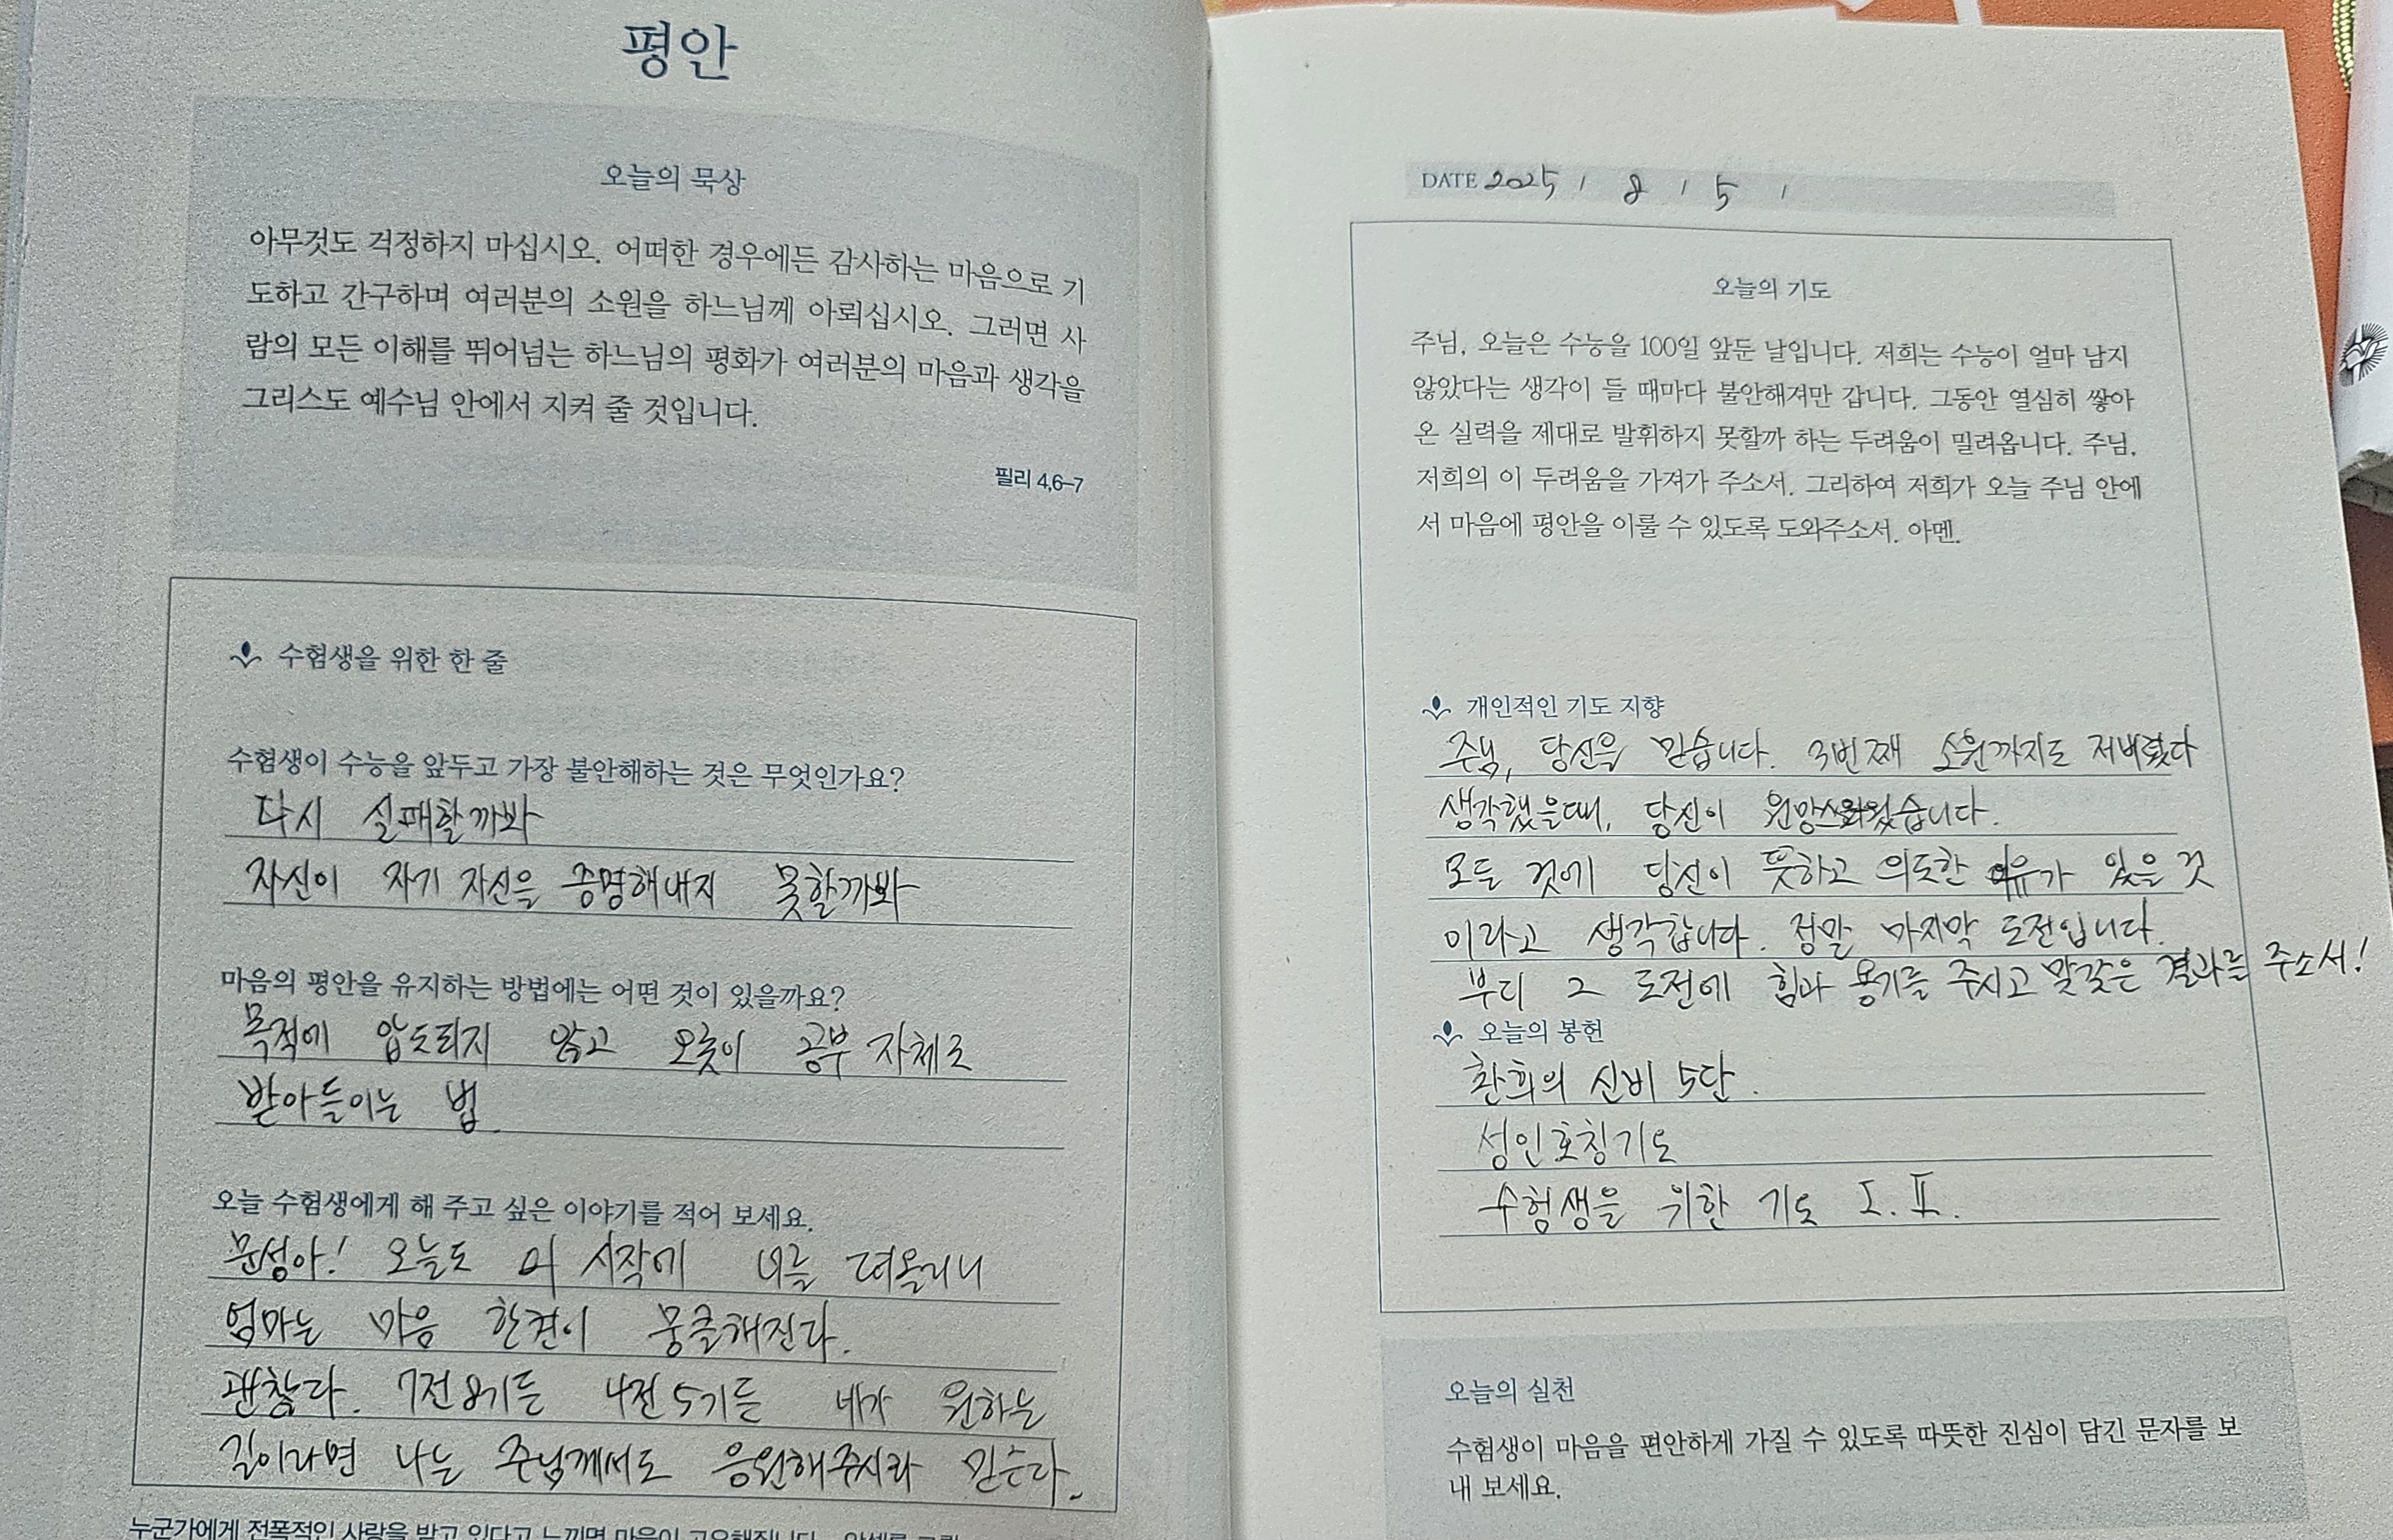 평안
오늘의 묵상
아무것도 걱정하지 마십시오. 어떠한 경우에든 감사하는 마음으로 기
도하고 간구하며 여러분의 소원을 하느님께 아뢰십시오. 그러면 사
람의 모든 이해를 뛰어넘는 하느님의 평화가 여러분의 마음과 생각을
그리스도 예수님 안에서 지켜 줄 것입니다.
필리 4,6–7
수험생을 위한 한 줄
수험생이 수능을 앞두고 가장 불안해하는 것은 무엇인가요?
다시 실패할까봐
자신이 자기 자신을 증명해내지 못할까봐
마음의 평안을 유지하는 방법에는 어떤 것이 있을까요?
목적에 압도되지 않고 오롯이 공부 자체로
받아들이는 법.
오늘 수험생에게 해 주고 싶은 이야기를 적어 보세요.
문성아! 오늘도 이 시작에 너를 떠올리니
엄마는 마음 한켠이 뭉클해진다.
괜찮다. 7전8기든 4전5기든 네가 원하는
길이라면 나는 주님께서도 응원해주시리라 믿는다.
누군가에게 전폭적인 사랑을 받고 있다고 느끼면 마음이
DATE 2025 / 8 / 5 /
오늘의 기도
주님, 오늘은 수능을 100일 앞둔 날입니다. 저희는 수능이 얼마 남지
않았다는 생각이 들 때마다 불안해져만 갑니다. 그동안 열심히 쌓아
온 실력을 제대로 발휘하지 못할까 하는 두려움이 밀려옵니다. 주님,
저희의 이 두려움을 가져가 주소서. 그리하여 저희가 오늘 주님 안에
서 마음에 평안을 이룰 수 있도록 도와주소서. 아멘.
개인적인 기도 지향
주님, 당신을 믿습니다. 3번째 소원까지도 저버렸다
생각했을때, 당신이 원망스러웠습니다.
모든 것에 당신이 뜻하고 의도한 이유가 있을 것
이라고 생각합니다. 정말 마지막 도전입니다.
부디 그 도전에 힘과 용기를 주시고 알맞은 결과를 주소서!
오늘의 봉헌
환희의 신비 5단.
성인호칭기도
수험생을 위한 기도 I. II.
오늘의 실천
수험생이 마음을 편안하게 가질 수 있도록 따뜻한 진심이 담긴 문자를 보
내 보세요.